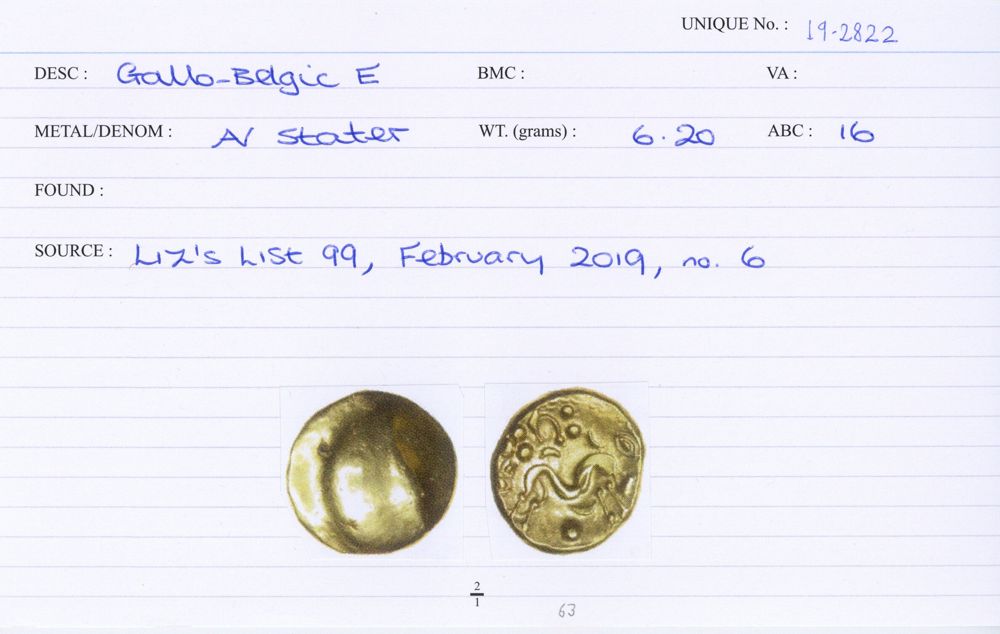 UNIQUE No. : 19-2822
DESC : Gallo-Belgic E BMC : VA :
METAL/DENOM : AV Stater WT. (grams) : 6.20 ABC : 16
FOUND :
SOURCE : Liz's List 99, February 2019, no. 6
2
1
63